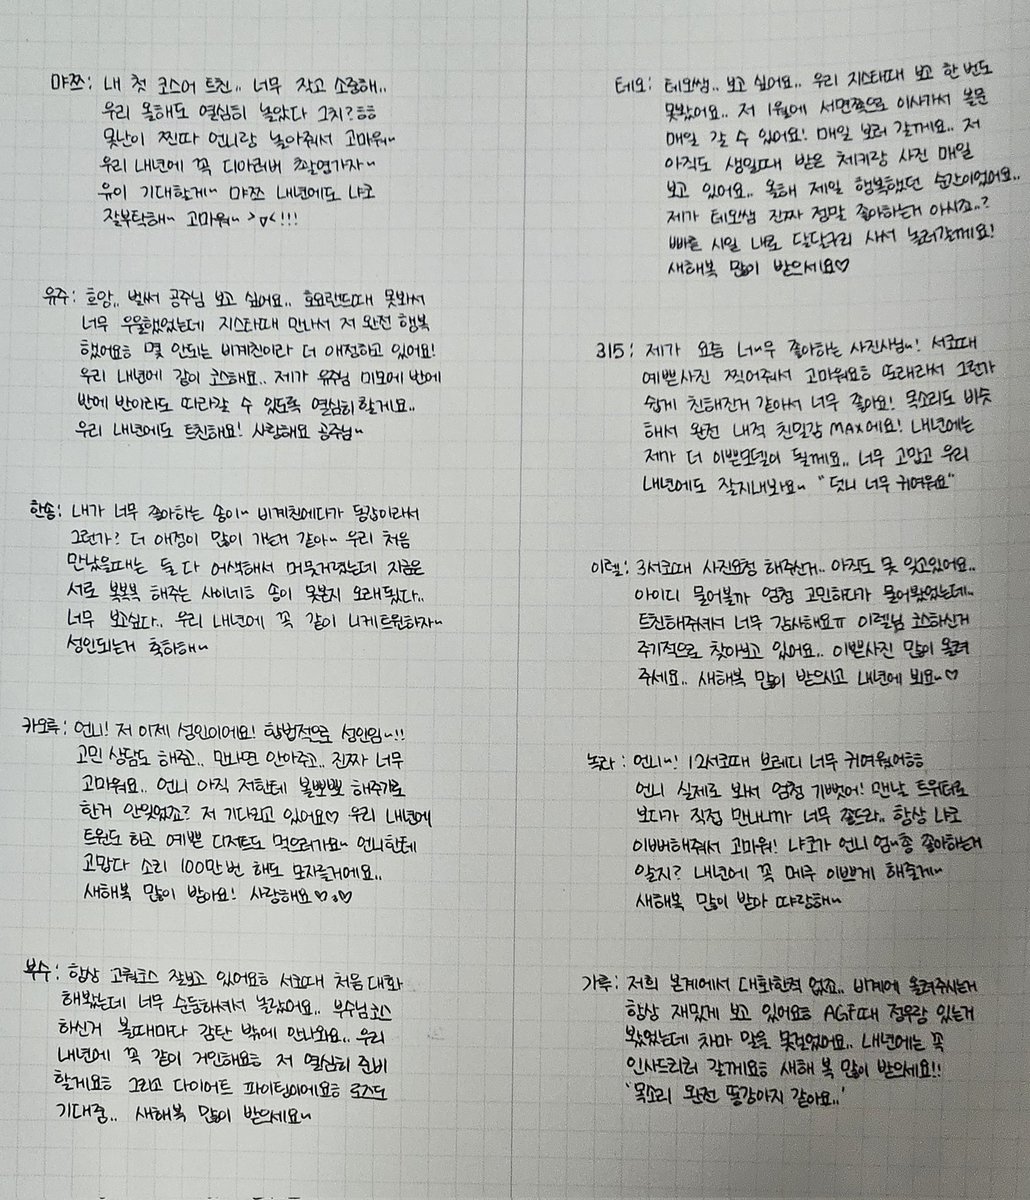 먀쯔: 내 첫 코스어 트친.. 너무 작고 소중해..
우리 올해도 열심히 놀았다 그치?ㅎㅎ
못난이 찐따 언니랑 놀아줘서 고마워~
우리 내년에 꼭 디아러버 촬영가자~
유이 기대할게~ 먀쯔 내년에도 냐코
잘부탁해~ 고마워~ >▽<!!!
유주: 흐앙.. 벌써 공주님 보고 싶어요.. 호요랜드때 못봐서
너무 우울했었는데 지스타때 만나서 저 완전 행복
했어요ㅎ 몇 안되는 비계친이라 더 애정하고 있어요!
우리 내년에 같이 코스해요.. 제가 유주님 미모에 반에
반에 반이라도 따라갈 수 있도록 열심히 할게요..
우리 내년에도 트친해요! 사랑해요 공주님~
한송: 내가 너무 좋아하는 송이~ 비계친에다가 동갑이라서
그런가? 더 애정이 많이 가는거 같아~ 우리 처음
만났을때는 둘 다 어색해서 머뭇거렸는데 지금은
서로 복복복 해주는 사이네ㅎ 송이 못본지 오래됐다..
너무 보고싶다.. 우리 내년에 꼭 같이 니케트윈하자~
성인되는거 축하해~
카오루: 언니! 저 이제 성인이에요! 합법적으로 성인임~!!
고민 상담도 해주고.. 만나면 안아주고.. 진짜 너무
고마워요.. 언니 아직 저한테 볼뽀뽀 해주기로
한거 안잊었죠? 저 기다리고 있어요♡ 우리 내년에
트윈도 하고 예쁜 디저트도 먹으러가요~ 언니한테
고맙다 소리 100만번 해도 모자를거에요..
새해복 많이 받아요! 사랑해요 ♡3♡
부수: 항상 고퀄코스 잘보고 있어요ㅎ 서코때 처음 대화
해봤는데 너무 순둥하셔서 놀랐어요.. 부수님 코스
하신거 볼때마다 감탄 밖에 안나와요.. 우리
내년에 꼭 같이 거인해요ㅎ 저 열심히 준비
할게요ㅎ 그리고 다이어트 파이팅이에요ㅎ 로즈도
기대중.. 새해복 많이 받으세요~
테오: 테오쌤.. 보고 싶어요.. 우리 지스타때 보고 한 번도
못봤어요.. 저 1월에 서면쪽으로 이사가서 본문
매일 갈 수 있어요! 매일 보러 갈께요.. 저
아직도 생일때 받은 체키랑 사진 매일
보고 있어요.. 올해 제일 행복했던 순간이었어요..
제가 테오쌤 진짜 정말 좋아하는거 아시죠..?
빠른 시일 내로 달달구리 사서 놀러갈께요!
새해복 많이 받으세요♡
315: 제가 요즘 너~무 좋아하는 사진사님~! 서코때
예쁜사진 찍어줘서 고마워요ㅎ 또래라서 그런가
쉽게 친해진거 같아서 너무 좋아요! 목소리도 비슷
해서 완전 내적 친밀감 MAX에요! 내년에는
제가 더 이쁜모델이 될께요.. 너무 고맙고 우리
내년에도 잘지내봐요~ "덧니 너무 귀여워요"
이렐: 3서코때 사진요청 해주신거.. 아직도 못 잊고있어요..
아이디 물어볼까 엄청 고민하다가 물어봤었는데..
트친해주셔서 너무 감사해요ㅠ 이렐님 코스하신거
주기적으로 찾아보고 있어요.. 이쁜사진 많이 올려
주세요.. 새해복 많이 받으시고 내년에 뵈요~♡
녹차: 언니~! 12서코때 브레디 너무 귀여웠어ㅎㅎ
언니 실제로 봐서 엄청 기뻤어! 맨날 트위터로
보다가 직접 만나니까 너무 좋드라.. 항상 냐코
이뻐해줘서 고마워! 냐코가 언니 엄~총 좋아하는거
알지? 내년에 꼭 메쿠 이쁘게 해줄게~
새해복 많이 받아 따랑해~
가루: 저희 본계에서 대화한적 없죠.. 비계에 올려주시는거
항상 재밌게 보고 있어요ㅎ AGF때 정우랑 있는거
봤었는데 차마 말을 못걸었어요.. 내년에는 꼭
인사드리러 갈께요ㅎ 새해 복 많이 받으세요!!
'목소리 완전 똥강아지 같아요..'